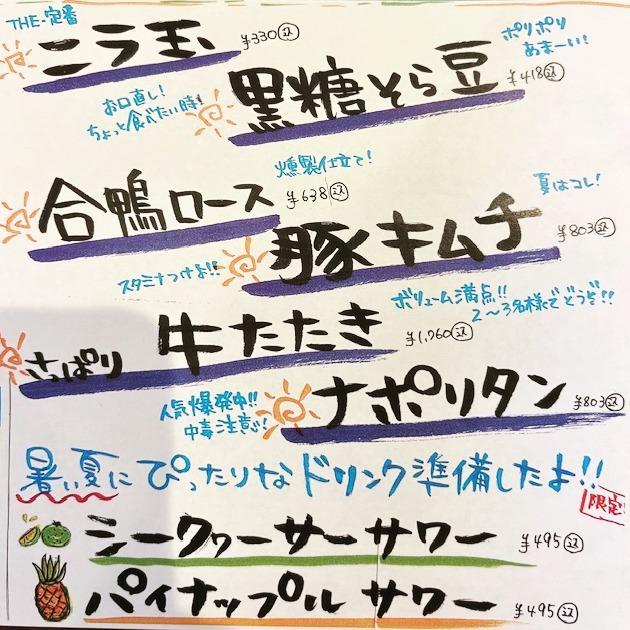 THE・定番
ニラ玉 ¥330込
ポリポリ
あまーい!
お口直し!
ちょっと食べたい時!
黒糖そら豆 ¥418込
燻製仕立て!
合鴨ロース ¥638込
夏はコレ!
スタミナつけよ!!
豚キムチ ¥803込
ボリューム満点!!
2〜3名様でどうぞ!!
さっぱり 牛たたき ¥1,760込
人気爆発中!!
中毒注意!!
ナポリタン ¥803込
暑い夏にぴったりなドリンク準備したよ!!
限定!
シークヮーサーサワー ¥495込
パイナップルサワー ¥495込